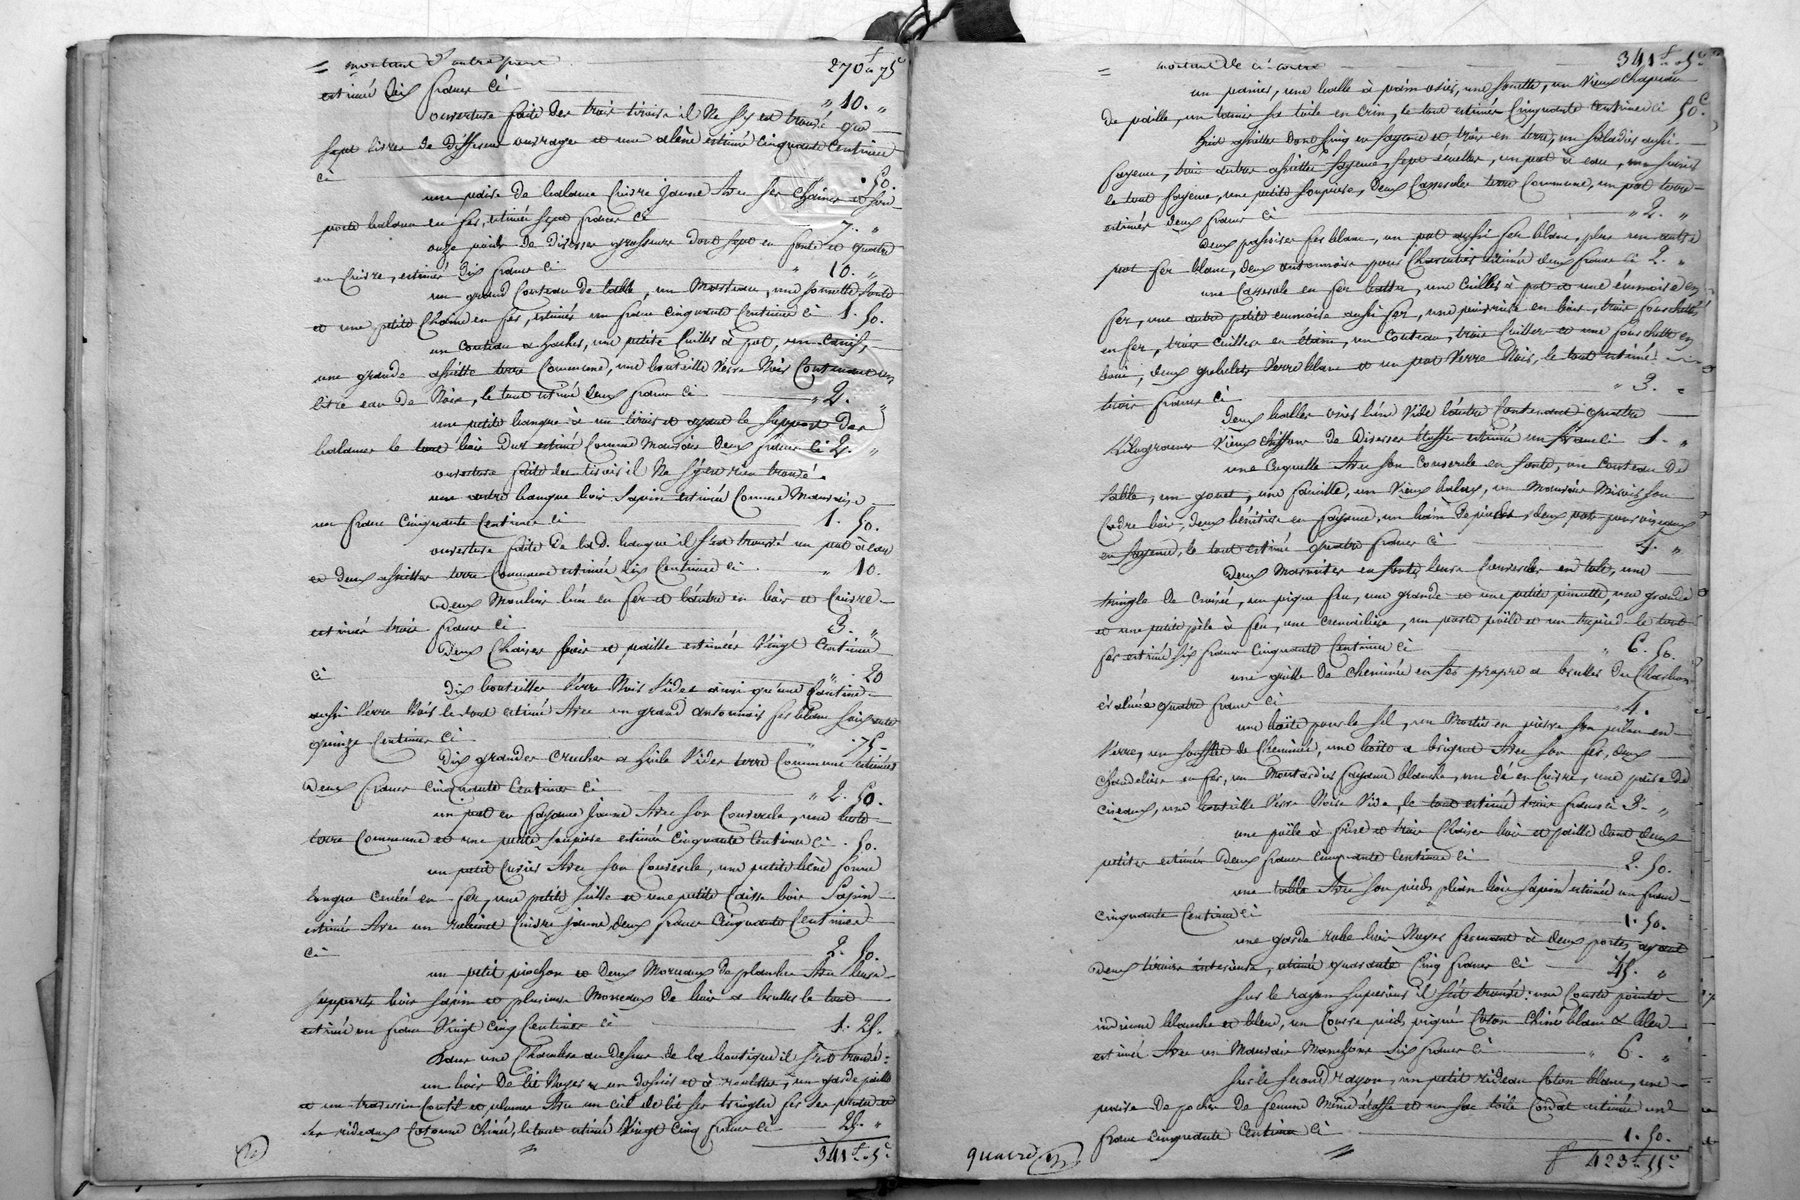 montant d'autre part 270f "75c
estimé dix francs ci " 10. "
ouverture faite des trois tiroirs il ne s'y est trouvé que
sept livres de différens ouvrages et une alène estimé cinquante centimes
ci . 50.
une paire de balance cuivre jaune avec ses chaines et son
porte balance en fer, estimée sept francs ci 7. "
onze poids de diverses grosseurs dont sept en fonte et quatre
en cuivre, estimés dix francs ci " 10. "
un grand couteau de table, un marteau, une sonnette fonte
et une petite chaine en fer, estimés un franc cinquante centimes ci 1. 50.
un couteau a hacher, une petite cuiller à pot, un canif,
une grande assiette terre commune, une bouteille verre noir contenant un
litre eau de noix, le tout estimé deux francs ci " 2. "
une petite banque à un tiroir et ayant le support des
balances le tout bois dur estimé comme mauvais deux francs ci 2. "
ouverture faite des tiroirs il ne s'y est rien trouvé.
une autre banque bois sapin estimée comme mauvaise
un franc cinquante centimes ci 1. 50.
ouverture faite de lad. banque il s'est trouvé un pot à eau
et deux assiettes terre commune estimés dix centimes ci " 10.
deux moulins l'un en fer et l'autre en bois et cuivre
estimés trois francs ci 3. "
deux chaises bois et paille estimées vingt centimes
ci " . 20
dix bouteilles verre noir vides ainsi qu'une
aussi verre noir le tout estimé avec un grand antonnoir fer blanc soixante
quinze centimes ci " . 75
dix grandes cruches a huile vides terre commune estimées
deux francs cinquante centimes ci " 2. 50.
un pot en fayance jaune avec son couvercle, une
terre commune et une petite soupière estimés cinquante centimes ci . 50.
un petit cuvier avec son couvercle, une petite bène forme
longue cerclée en fer, une petite seille et une petite caisse bois sapin
estimés avec un robinet cuivre jaune, deux francs cinquante centimes
ci 2. 50.
un petit piochon et deux morceaux de planche avec leurs
supports bois sapin et plusieurs morceaux de bois a bruler le tout
estimé un franc vingt cinq centimes ci 1. 25.
Dans une chambre au dessus de la boutique il s'est trouvé:
un bois de lit noyer a un dossier et à roulettes, un garde paille
et un traversin coutil et plumes avec un ciel de lit ses tringles fer ses pentes et
ses rideaux cotonne chinée, le tout estimé vingt cinq francs ci 25. "
341f. 5c
montant de ci contre 341f. 5c
un panier, une balle à pain osier, une, un vieux chapeau
de paille, un tamis sa toile en crin, le tout estimé cinquante centimes ci 50c.
huit assiettes dont cinq en fayence et trois en terre, un saladier aussi
fayence, trois autres assiettes fayence, sept écuelles, un pot à eau, une
le tout fayence, une petite soupière, deux casseroles terre commune, un pot terre
estimés deux francs ci " 2. "
deux passoires fer blanc, un pot aussi fer blanc, plus un autre
pot fer blanc, deux antonnoirs pour charcutier estimés deux francs ci 2. "
une casserole en fer battu, une cuiller à pot et une écumoire en
fer, une autre petite écumoire aussi fer, une poivrière en bois, trois fourchettes
en fer, trois cuillers en étain, un couteau, trois cuillers et une fourchette en
bois, deux gobelets verre blanc et un pot verre noir, le tout estimé
trois francs ci " 3. "
deux balles osier l'une vide l'autre contenant quatre
kilogrames vieux chiffons de diverses étoffes estimés un franc ci 1. "
une coquelle avec son couvercle en fonte, un couteau de
table, un gouet, une faucille, un vieux balais, un mauvais miroir son
cadre bois, deux bénitiers en fayance, un bain de pieds, deux pots pour oiseaux
en fayence, le tout estimé quatre francs ci 4. "
deux marmites en fonte leurs couvercles en tole, une
tringle de croisée, un pique feu, une grande et une petite pincette, une grande
et une petite pèle à feu, une cremaillère, un porte poële et un trepied le tout
fer estimé six francs cinquante centimes ci " 6. 50.
une grille de cheminée en fer propre a bruler du charbon
évaluée quatre francs ci " 4. "
une boîte pour le sel, un mortier en pierre son pilon en
verre, un soufflet de cheminée, une boîte a briquet avec son fer, deux
chandeliers en fer, un moutardier fayance blanche, un dé en cuivre, une paire de
ciseaux, une bouteille verre noir vide, le tout estimé trois francs ci 3. "
une poële à frire et trois chaises bois et paille dont deux
petites estimées deux francs cinquante centimes ci 2. 50.
une table avec son pieds pliant bois sapin estimée un franc
cinquante centimes ci 1. 50.
une garde robe bois noyer fermant à deux portes ayant
deux tiroirs intérieurs, estimée quarante cinq francs ci 45. "
sur le rayon supérieur il s'est trouvé: une courte pointe
indienne blanche et bleu, un couvre pieds piqué coton chiné blanc & bleu
estimé avec un mauvais manchon six francs ci " 6. "
sur le second rayon, un petit rideau coton blanc, une
paire de poches de femme même étoffe et un sac toile estimés un
franc cinquante centimes ci 1. 50.
f 423f. 55c